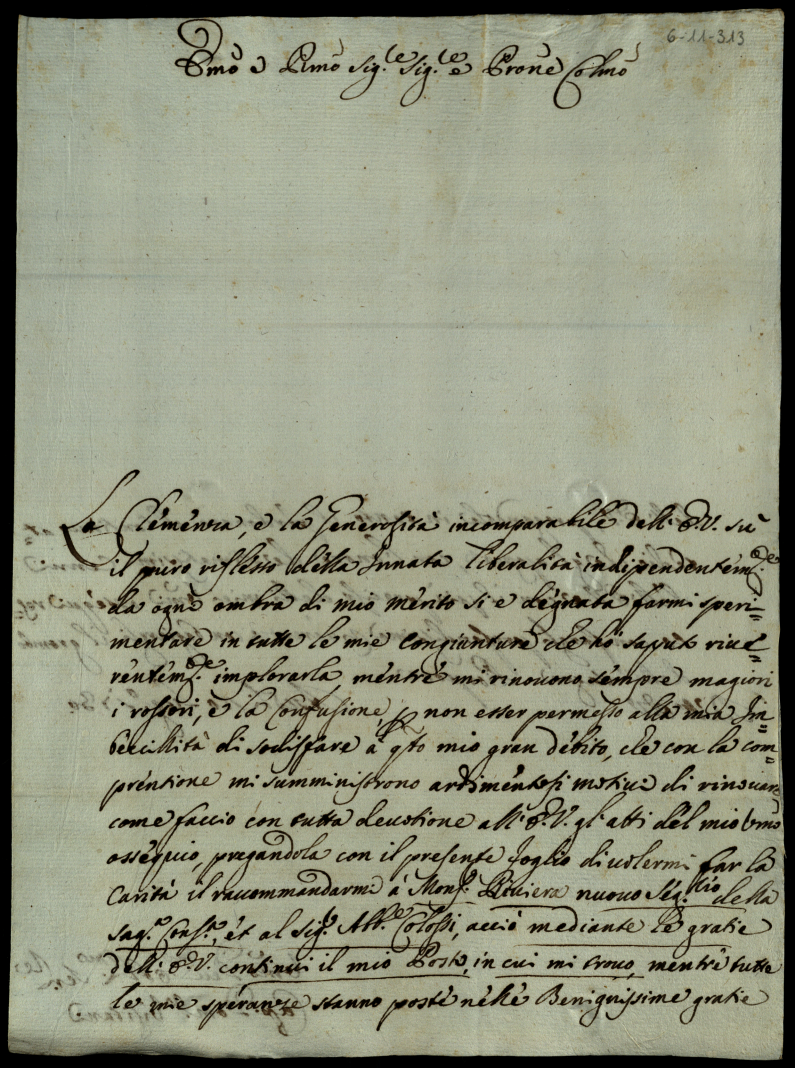 6-11-313
Emo e Rmo Sig.re Sig.re e Prone Colmo
La Clemenza, e la Generosità incomparabile dell' E.V. sù
il puro riflesso della Innata liberalità indipendentem.te
da ogni ombra di mio merito si e degnata farmi speri=
mentare in tutte le mie congiunture che hò saputo rive=
rentem.te implorarla, mentre mi rinovono sempre magiori
i rossori, e la Confusione, per non esser permesso alla mia Im=
becillità di sodisfare à qsto mio gran debito, che con la com=
prentione mi sumministrono ardimentosi motivi di rinovare
come faccio con tutta devotione all' E.V. gl' atti del mio Umo
ossequio, pregandola con il presente foglio di volermi far la
Carità il raccommandarmi à Mons.r Riviera nuovo Seg.rio della
sag.a Cons.ta, et al Sig.r Abb.e Colossi, acciò mediante le gratie
dell' E.V. continui il mio Posto, in cui mi trovo, mentre tutte
le mie speranze stanno poste nelle Benignissime gratie